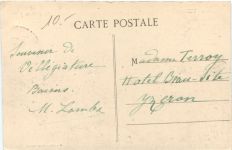 10.-
CARTE POSTALE
Souvenir de
Villégiature
Baisers
M. Lombe
Madame Terroy
Hotel Beau-Site
Yzeron